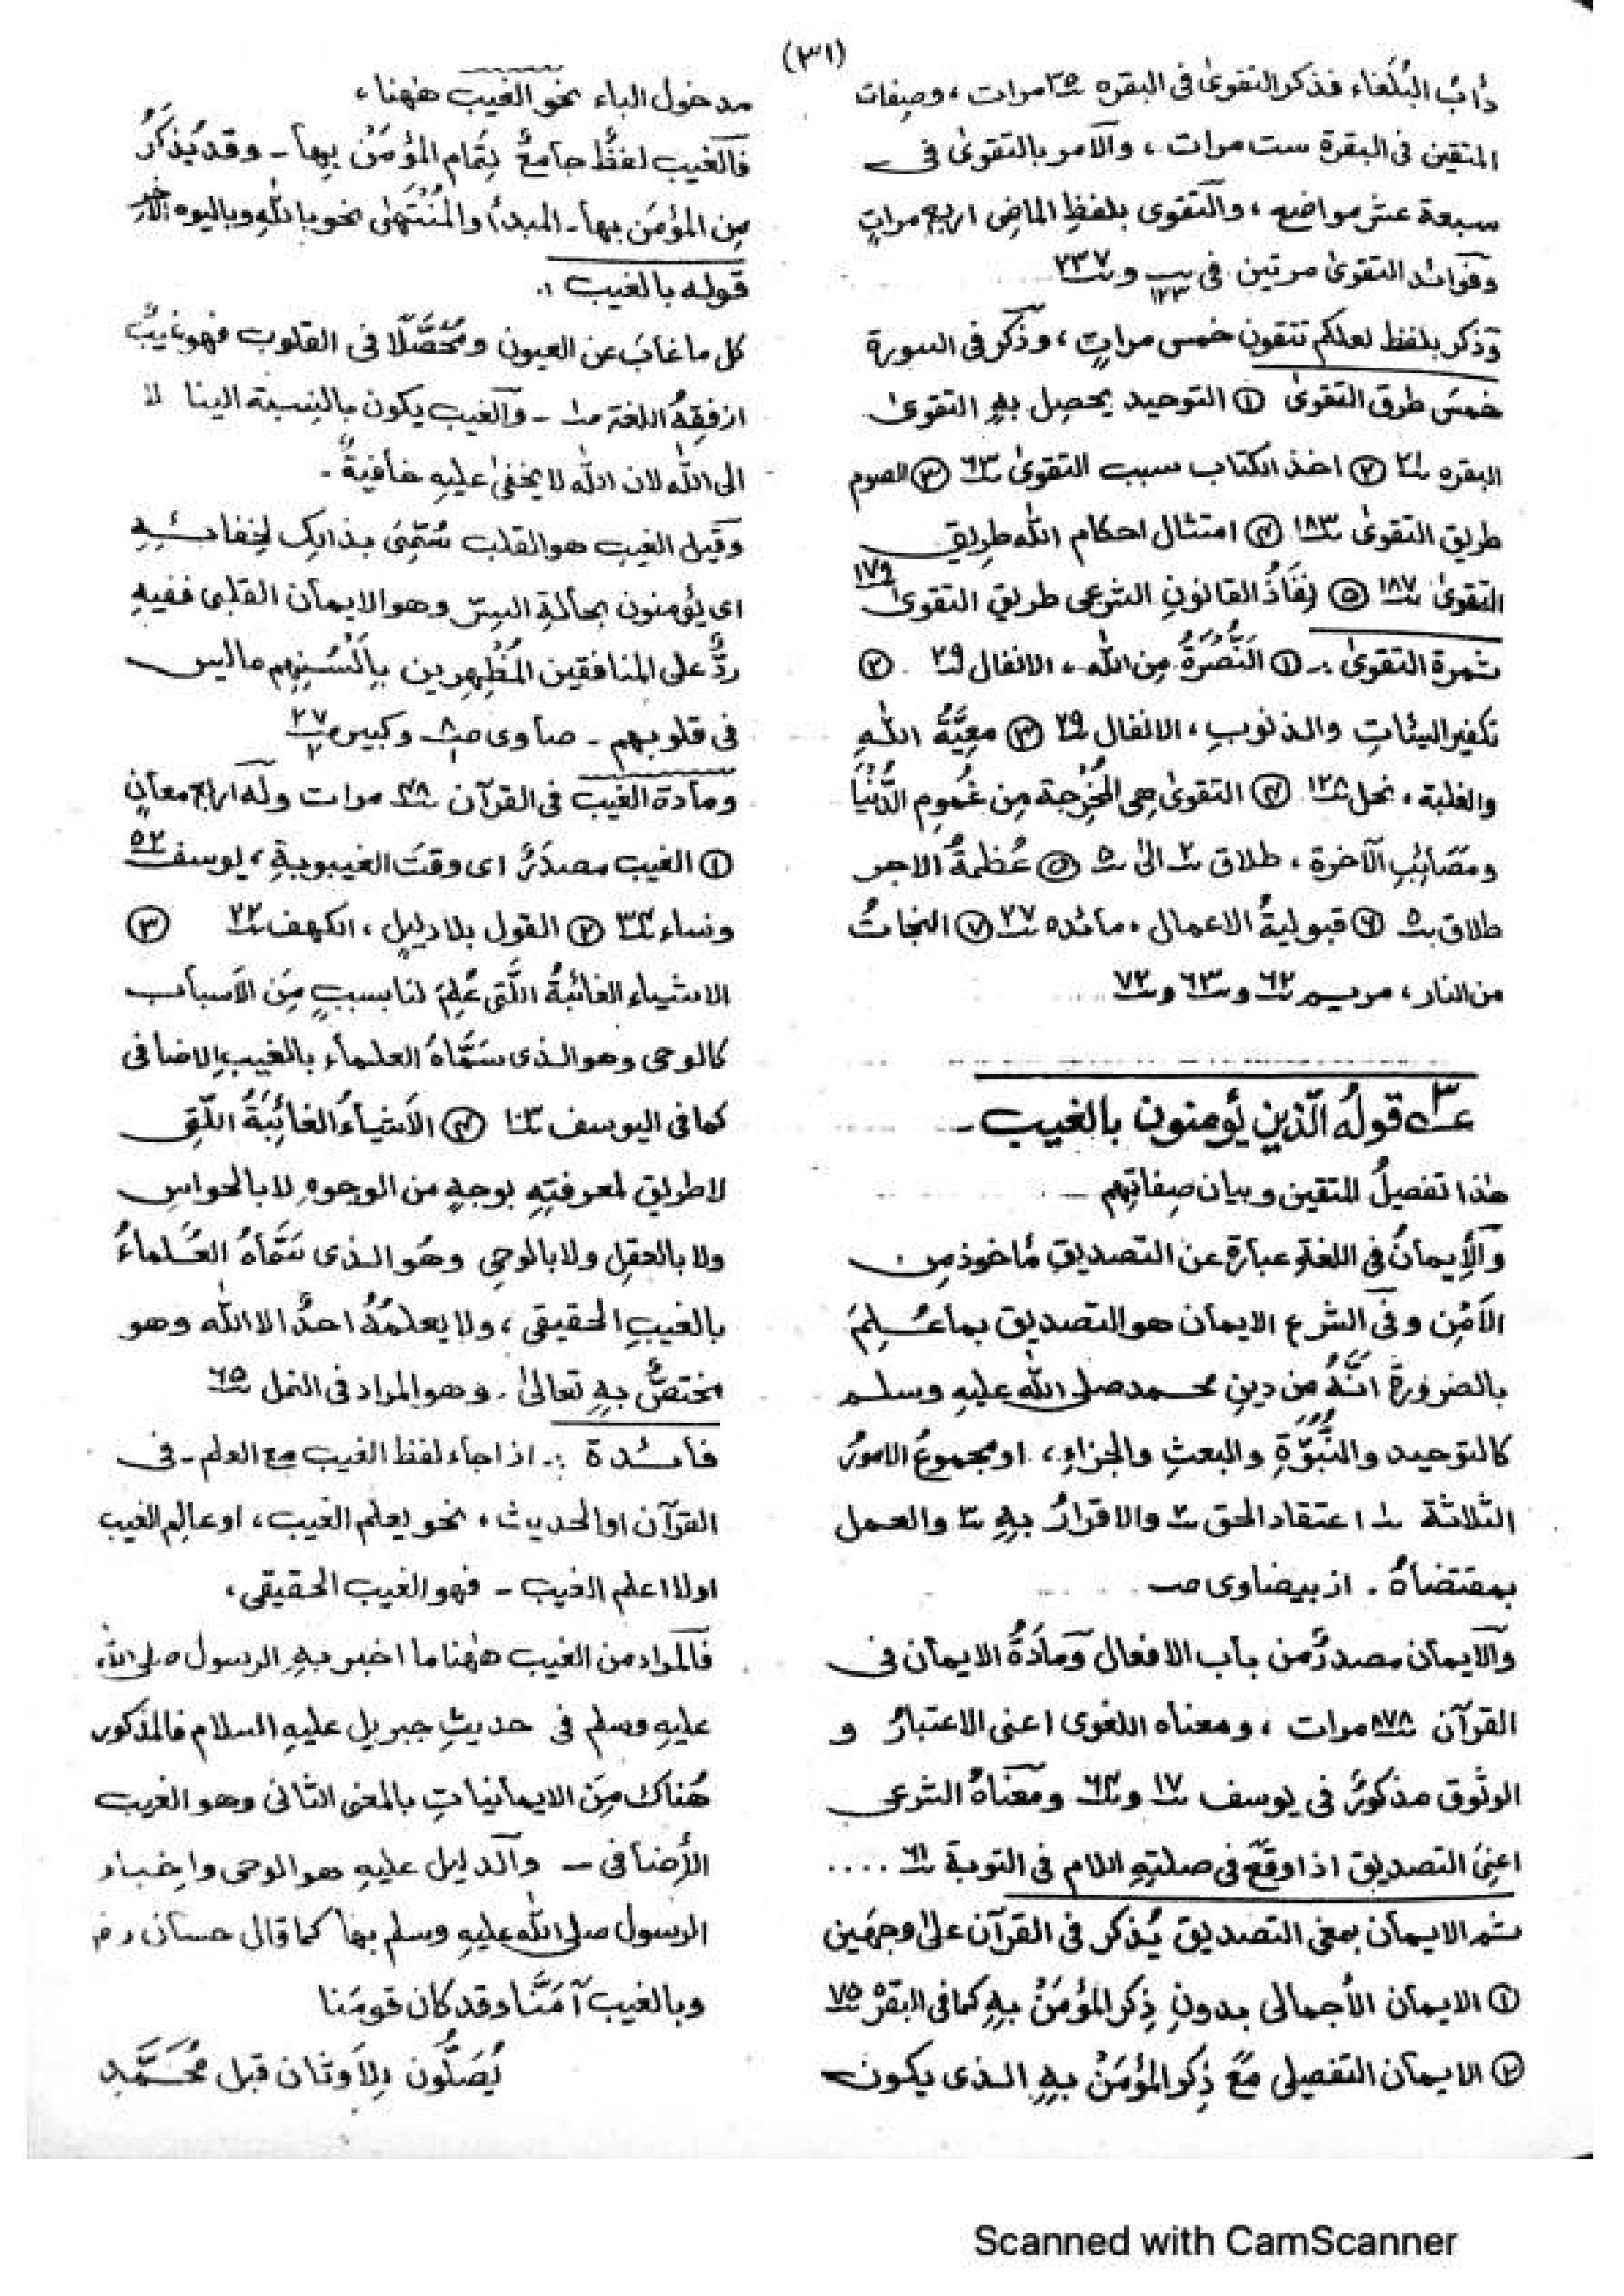 (٣١)
دأبُ البُلَغاء فذكر التقوىٰ فى البقره ٣٥ مرات ، وصِفات
المتقين فى البقرة ست مرات ، والآمر بالتقوىٰ فى
سبعة عشر مواضع ، والتقوى بلفظِ الماضى اربع مراتٍ
وفوائد التقوىٰ مرتين فى ١٢٣ و ٢٣٧
وذكر بلفظ لعلكم تتقون خمس مراتٍ ، وذكر فى السورة
خمسَ طرق التقوىٰ ① التوحيد يحصِل بهٖ التقوىٰ
البقره ٢١ ② اخذ الكتاب سبب التقوىٰ ٦٣ ③ الصوم
طريق التقوىٰ ١٨٣ ④ امتثال احكام الله طريق
التقوىٰ ١٨٧ ⑤ نِفَاذُ القانونِ الشرعى طريق التقوىٰ ١٧٩
ثمرة التقوىٰ :ـ ① اَلنُّصْرَةُ مِن الله ، الانفال ٢٩ ②
تكفير السيئاتِ والذنوبِ ، الانفال ٢٩ ③ معِيَّةُ اللهِ
والغلبة ، نحل ١٢٨ ④ التقوىٰ هى المُخْرِجة مِن غُمومِ الدُّنْيَا
ومَصَائِبِ الآخرة ، طلاق ٢ الىٰ ٥ ⑤ عُظمةُ الاجر
طلاق ٥ ⑥ قبوليةُ الاعمال ، مائده ٢٧ ⑦ النجاتُ
من النار ، مريم ٦٢ و ٦٣ و ٧٢
٣ قولهُ الّذين يؤمنون بالغيب ـ
هٰذا تفصيلُ للمتقين وبيان صِفاتِهم
والْإِيمانُ فى اللغةِ عبارة عن التصديقِ مأخوذ مِن
الاَمْنِ وفى الشرع الايمان هو التصديق بما عُلِمَ
بالضرورة انّهُ من دينِ محمد صلى الله عليهِ وسلم
كالتوحيد والنُّبُوَّةِ والبعثِ والجزاءِ ، او مجموعُ الامورُ
الثلاثة ١ اعتقاد الحق ٢ والاقرارُ بهٖ ٣ والعمل
بمقتضاهُ . از بيضاوى صـ
والايمان مصدرٌ من باب الافعال ومادَةُ الايمان فى
القرآن ٨٧٨ مرات ، ومعناه اللغوى اعنى الاعتبارُ و
الوثوق مذكورٌ فى يوسف ١٧ و ٦٤ ومعناهُ الشرعى
اعنِىَ التصديق اذا وقع فى صلتِهٖ اللام فى التوبة ٦١ ....
ثم الايمان بمعنى التصديق يُذكر فى القرآن علىٰ وجهَين
① الايمان الأجمالى بدونِ ذِكر المُؤمَنْ بهٖ كما فى البقرْه ٧٥
② الايمان التفصيلى معَ ذِكر المُؤمَنْ بهٖ الذى يكون
مدخول الباء نحو الغيب هٰهنا ،
فالغيب لفظٌ جامعٌ بِتَمام المُؤمَنْ بِها ـ وقد يُذكَرُ
مِن المُؤمَن بها ـ المبدأ والمُنْتَهىٰ نحو باللهِ وباليوم الآخر
قوله بالغيب :.
كل ما غابَ عن العيون ومُحَصَّلًا فى القلوب فهو غيبٌ
از فِقهُ اللغة ـ والغيب يكون بالنِسبة الينا لا
الى الله لان الله لا يخفىٰ عليهِ خافيةٌ ـ
وقيل الغيب هو القلب سُمِّىَ بذالك لِخفائِهٖ
اى يؤمنون بحالةِ السِرّ وهو الايمان القلبى ففيهِ
ردٌّ على المنافقين المُظْهِرِين بِاَلْسُنِهِم ما ليس
فى قلوبهم ـ صاوى صـ ٨/١ وكبير ٢٧/٢
ومادة الغيب فى القرآن مرات ولهٗ اربع معانٍ
① الغيب مصدَرٌ اى وقتَ الغيبوبةِ ، يوسف ٥٢
ونساء ٣٤ ② القول بلا دليلٍ ، الكهف ٢٢ ③
الاشياء الغائبةُ الّتى عُلِمَ لنا بسببٍ مِنَ الاَسباب
كالوحى وهو الذى سَمَّاهُ العلماء بالغيبِ الاضافى
كما فى اليوسف ١٠٢ ④ الاَشياءُ الغائِبَةُ الّتِى
لا طريق لمعرفتِهٖ بوجهٍ من الوجوهِ لا بالحواسِ
ولا بالعقلِ ولا بالوحىِ وهُو الذى سَمَّاهُ العُلماءُ
بالغيبِ الحقيقى ، ولا يعلمُهُ احدٌ الا الله وهو
مختصٌ بهٖ تعالىٰ . وهو المراد فى النمل ٦٥
فائدة :ـ اذا جاء لفظ الغيب مع العلم ـ فى
القرآن او الحديث ، نحو يعلم الغيب ، او عالِم الغيب
او لا اعلم الغيب ـ فهو الغيب الحقيقى ،
فالمراد من الغيب هٰهُنا ما اخبر بهٖ الرسول صلى الله
عليهِ وسلم فى حديثِ جبريل عليهِ السلام فالمذكور
هُناك مِنَ الايمانياتِ بالمعنى الثانى وهو الغيب
الأضافى ـ والدليل عليهِ هو الوحى واِخبار
الرسول صلى الله عليهِ وسلم بها كما قال حسان رض
وبالغيب آمَنَّا وقد كان قومَنا
يُصَلُّون لِلاَوثان قبل مُحَمَّدٖ
Scanned with CamScanner